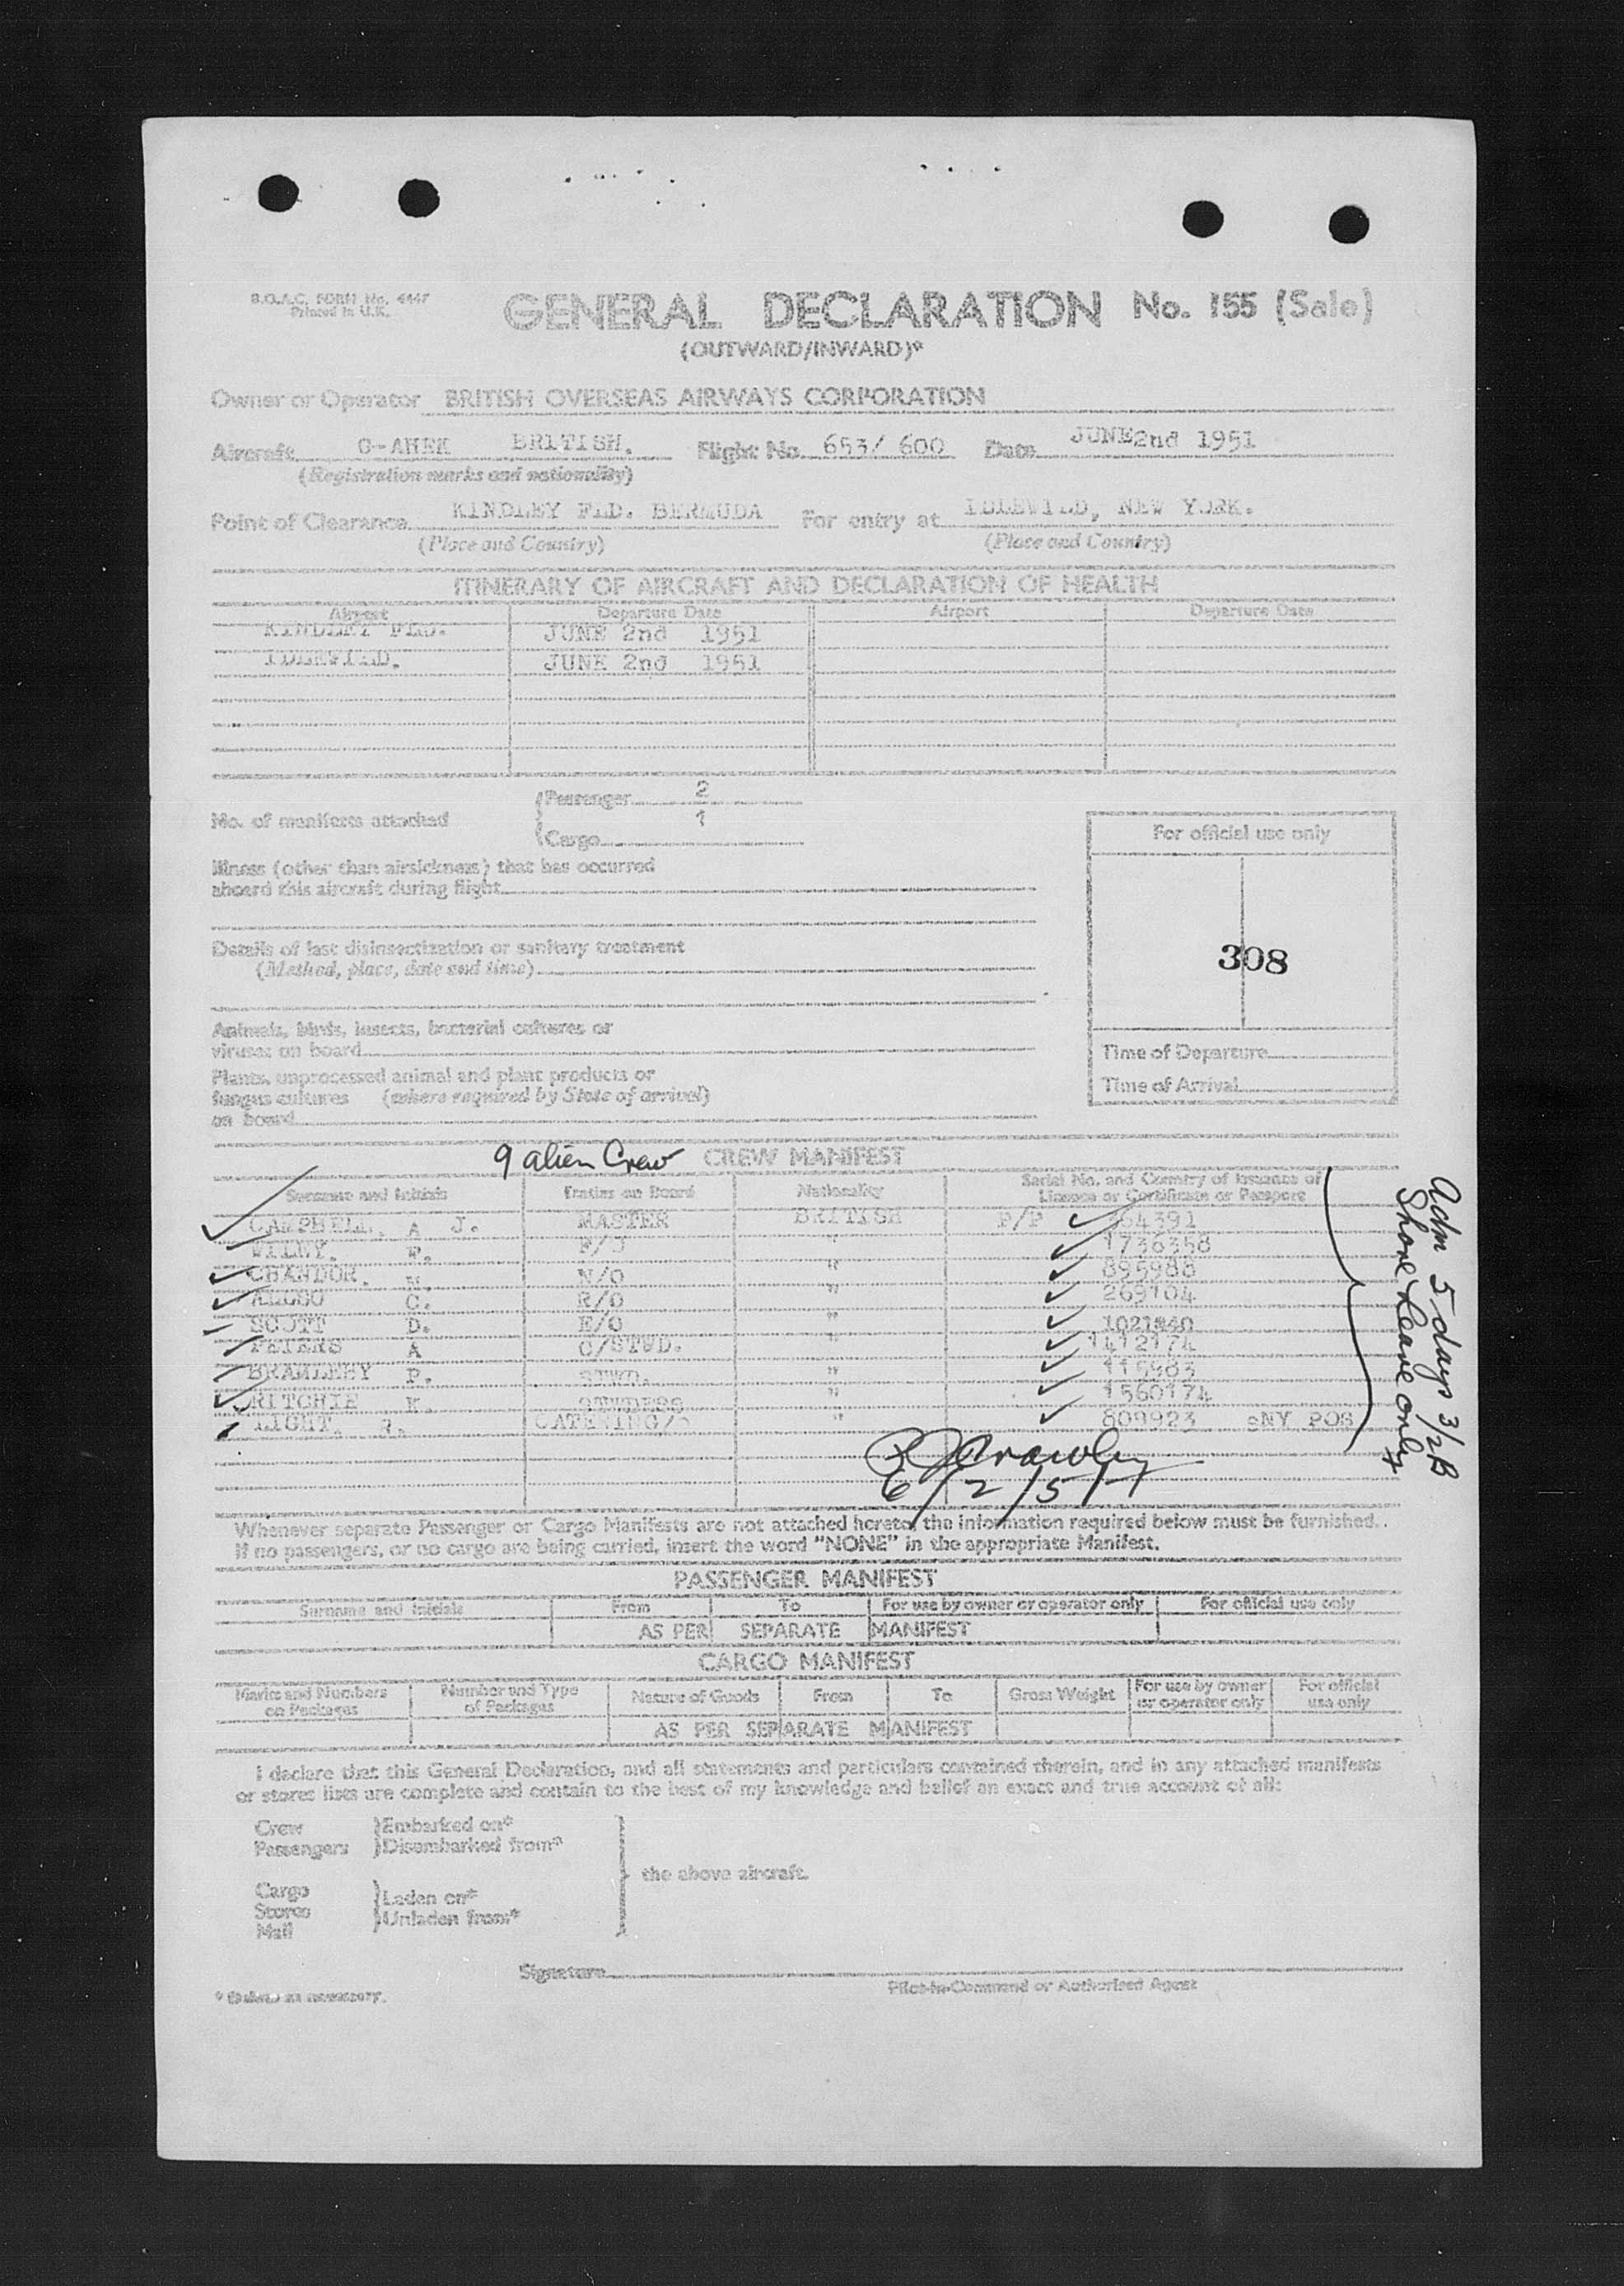 B.O.A.C. FORM No. 4447
Printed in U.K.
GENERAL DECLARATION No. 155 (Sale)
(OUTWARD/INWARD)*
Owner or Operator BRITISH OVERSEAS AIRWAYS CORPORATION
Aircraft G-AHEK BRITISH. Flight No. 653/ 600 Date JUNE 2nd 1951
(Registration marks and nationality)
Point of Clearance KINDLEY FLD. BERMUDA For entry at IDLEWILD, NEW YORK.
(Place and Country) (Place and Country)
ITINERARY OF AIRCRAFT AND DECLARATION OF HEALTH
Airport Departure Date Airport Departure Date
KINDLEY FLD. JUNE 2nd 1951
IDLEWILD. JUNE 2nd 1951
No. of manifests attached
Passenger 2
Cargo 1
For official use only
Illness (other than airsickness) that has occurred
aboard this aircraft during flight
308
Details of last disinsectization or sanitary treatment
(Method, place, date and time)
Animals, birds, insects, bacterial cultures or
viruses on board
Time of Departure
Plants, unprocessed animal and plant products or
fungus cultures (where required by State of arrival)
on board
Time of Arrival
9 alien Crew CREW MANIFEST
Surname and Initials Duties on Board Nationality Serial No. and Country of Issuance of
Licence or Certificate or Passport
CAMPBELL. A J. MASTER BRITISH P/P 364391
F. " 1736358
CHANDOR. N. N/O " 895988
C. R/O " 269104
SCOTT D. E/O " 1021840
PETERS A C/STWD. " 1412174
BRAMLEY P. STWD. " 115983
RITCHIE K. " 1560174
LIGHT. CATERING/ " 809923 POS
Adm 5 days 3/2B
Shore leave only
6/2/51
Whenever separate Passenger or Cargo Manifests are not attached hereto, the information required below must be furnished.
If no passengers, or no cargo are being carried, insert the word "NONE" in the appropriate Manifest.
PASSENGER MANIFEST
Surname and Initials From To For use by owner or operator only For official use only
AS PER SEPARATE MANIFEST
CARGO MANIFEST
Marks and Numbers on Packages Number and Type of Packages Nature of Goods From To Gross Weight For use by owner or operator only For official use only
AS PER SEPARATE MANIFEST
I declare that this General Declaration, and all statements and particulars contained therein, and in any attached manifests
or stores lists are complete and contain to the best of my knowledge and belief an exact and true account of all:
Crew Embarked on*
Passengers Disembarked from*
the above aircraft.
Cargo
Stores Laden on*
Mail Unladen from*
Signature
Pilot-in-Command or Authorised Agent
* Delete as necessary.